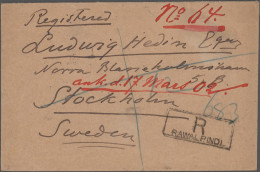 Registered
No 64.
Ludwig Hedin Esqre
Norra Blasieholmshamn
ank. d. 17 Mars 02
Stockholm
Sweden
R
RAWALPINDI